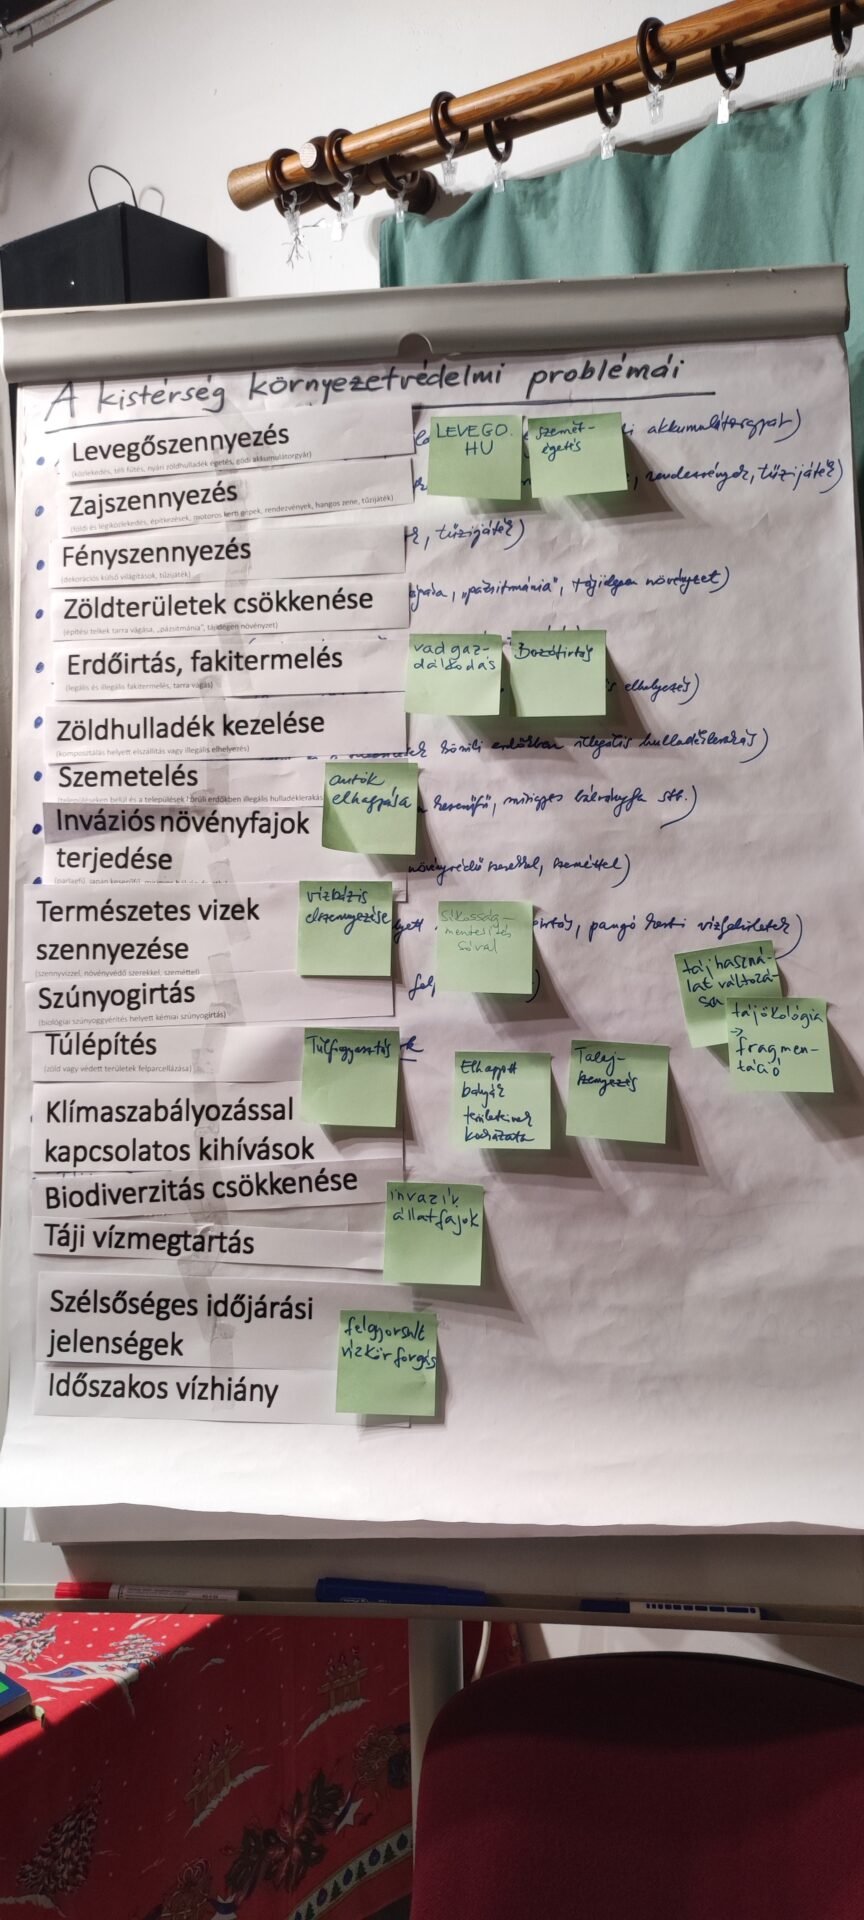 A kistérség környezetvédelmi problémái
Levegőszennyezés
(közlekedés, téli fűtés, nyári zöldhulladék égetés, gödi akkumulátorgyár)
LEVEGO.
HU
szemét-
égetés
akkumulátorgyár)
Zajszennyezés
(földi és légiközlekedés, építkezések, motoros kerti gépek, rendezvények, hangos zene, tűzijáték)
, rendezvények, tűzijáték)
Fényszennyezés
(dekorációs külső világítások, tűzijáték)
, tűzijáték)
Zöldterületek csökkenése
(építési telkek tarra vágása, „pázsitmánia”, tájidegen növényzet)
„pázsitmánia”, tájidegen növényzet)
Erdőirtás, fakitermelés
(legális és illegális fakitermelés, tarra vágás)
vadgaz-
dálkodás
Bozótirtás
elhelyezés)
Zöldhulladék kezelése
(komposztálás helyett elszállítás vagy illegális elhelyezés)
körüli erdőkben illegális hulladéklerakás)
Szemetelés
(településeken belül és a települések körüli erdőkben illegális hulladéklerakás
autók
elhagyása
mirigyes bálványfa stb.)
Inváziós növényfajok
terjedése
növényvédő szerekkel, szeméttel)
Természetes vizek
szennyezése
(szennyvízzel, növényvédő szerekkel, szeméttel)
vízbázis
elszennyezése
síkosság-
mentesítés
sóval
pangó kerti vízfelületek)
Szúnyogirtás
(biológiai szúnyoggyérítés helyett kémiai szúnyogirtás)
tájhaszná-
lat változá-
sa
tájökológia
→
fragmen-
táció
Túlépítés
(zöld vagy védett területek felparcellázása)
Túlfogyasztás
Elhagyott
bányák
területeinek
kockázata
Talaj-
szennyezés
Klímaszabályozással
kapcsolatos kihívások
Biodiverzitás csökkenése
invazív
állatfajok
Táji vízmegtartás
Szélsőséges időjárási
jelenségek
felgyorsult
vízkörforgás
Időszakos vízhiány